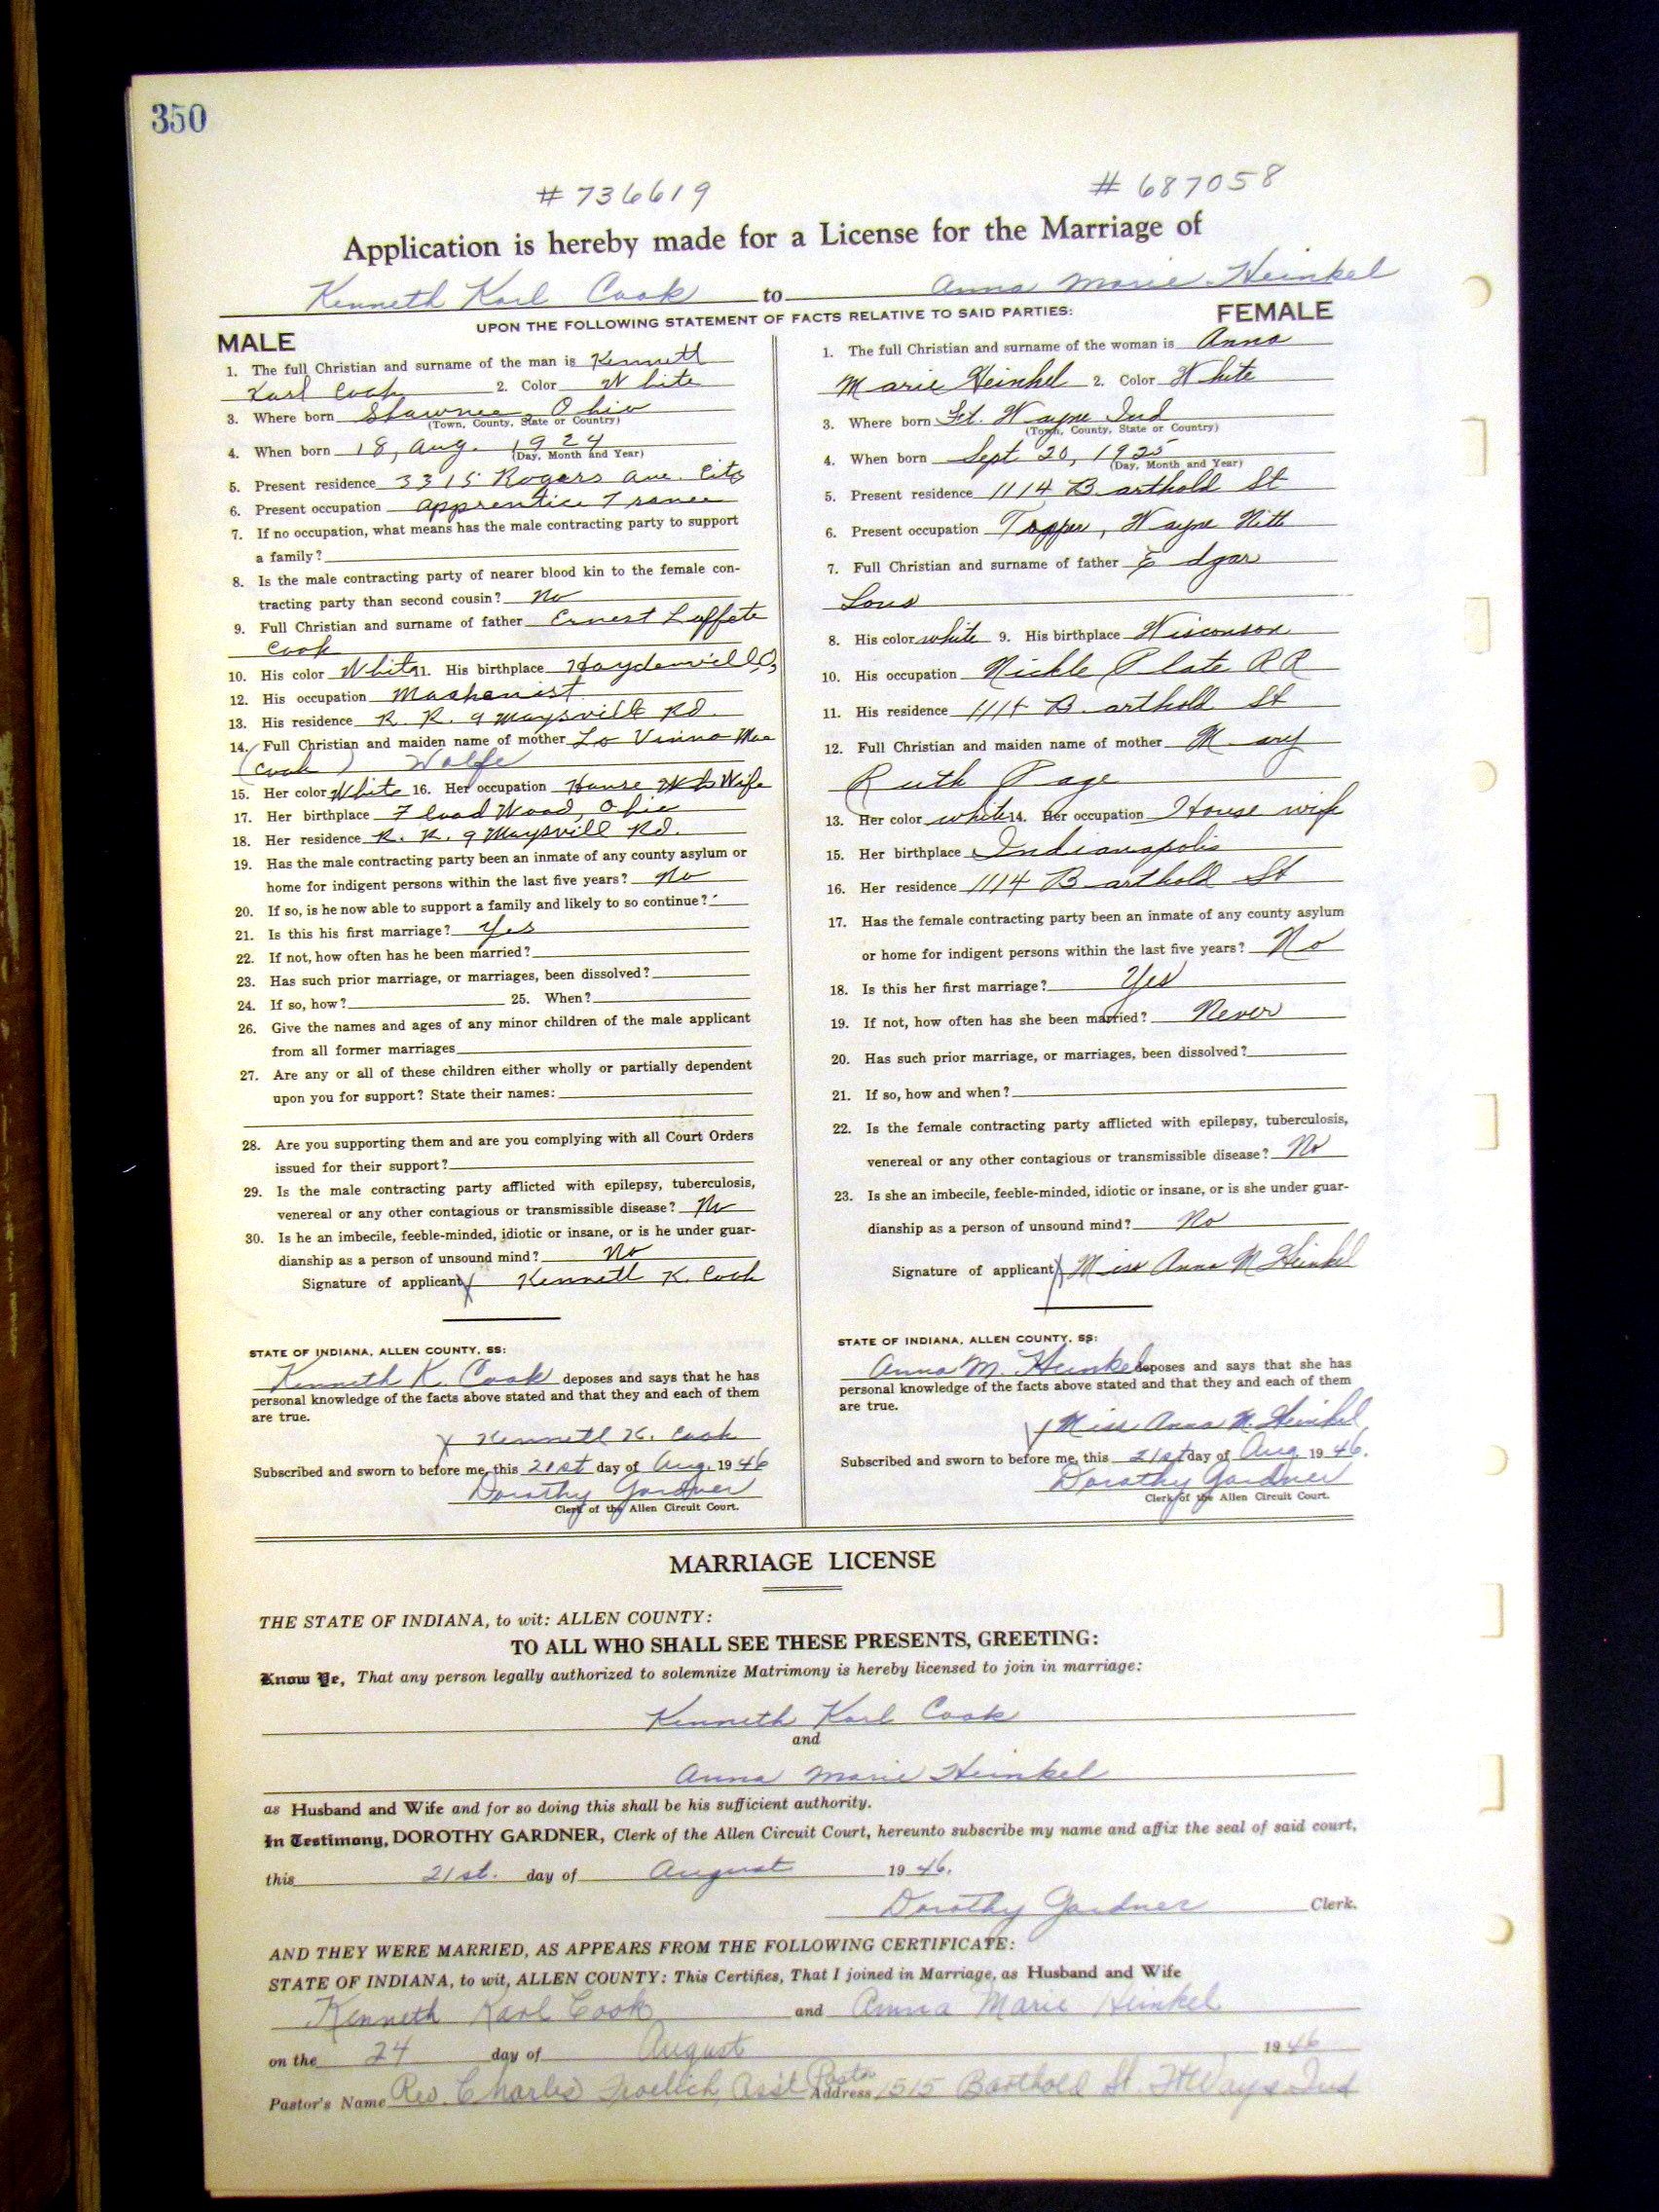 350
# 736619 # 687058
Application is hereby made for a License for the Marriage of
Kenneth Karl Cook to Anna Marie Heinkel
UPON THE FOLLOWING STATEMENT OF FACTS RELATIVE TO SAID PARTIES:
MALE
1. The full Christian and surname of the man is Kenneth
Karl Cook 2. Color White
3. Where born Shawnee, Ohio
(Town, County, State or Country)
4. When born 18, Aug. 1924
(Day, Month and Year)
5. Present residence 3315 Rogers Ave. City
6. Present occupation Apprentice
7. If no occupation, what means has the male contracting party to support
a family?
8. Is the male contracting party of nearer blood kin to the female con-
tracting party than second cousin? No
9. Full Christian and surname of father Ernest Laffate
Cook
10. His color White 11. His birthplace Haydenvill O,
12. His occupation Mashenist
13. His residence R. R. 9 Maysvill Rd.
14. Full Christian and maiden name of mother La Vinna Mae
(Cook) Wolfe
15. Her color White 16. Her occupation House Wife
17. Her birthplace Flood Wood, Ohio
18. Her residence R. R. 9 Maysvill Rd.
19. Has the male contracting party been an inmate of any county asylum or
home for indigent persons within the last five years? No
20. If so, is he now able to support a family and likely to so continue?
21. Is this his first marriage? Yes
22. If not, how often has he been married?
23. Has such prior marriage, or marriages, been dissolved?
24. If so, how? 25. When?
26. Give the names and ages of any minor children of the male applicant
from all former marriages
27. Are any or all of these children either wholly or partially dependent
upon you for support? State their names:
28. Are you supporting them and are you complying with all Court Orders
issued for their support?
29. Is the male contracting party afflicted with epilepsy, tuberculosis,
venereal or any other contagious or transmissible disease? No
30. Is he an imbecile, feeble-minded, idiotic or insane, or is he under guar-
dianship as a person of unsound mind? No
Signature of applicant Kenneth K. Cook
STATE OF INDIANA, ALLEN COUNTY, SS:
Kenneth K. Cook deposes and says that he has
personal knowledge of the facts above stated and that they and each of them
are true.
x Kenneth K. Cook
Subscribed and sworn to before me, this 21st day of Aug. 1946
Dorothy Gardner
Clerk of the Allen Circuit Court.
FEMALE
1. The full Christian and surname of the woman is Anna
Marie Heinkel 2. Color White
3. Where born Ft. Wayne Ind
(Town, County, State or Country)
4. When born Sept 20, 1925
(Day, Month and Year)
5. Present residence 1114 Barthold St
6. Present occupation Topper, Wayne Nitt
7. Full Christian and surname of father Edgar
Lous
8. His color white 9. His birthplace Wisconson
10. His occupation Nickle Plate RR
11. His residence 1114 Barthold St
12. Full Christian and maiden name of mother Mary
Ruth Page
13. Her color white 14. Her occupation House wife
15. Her birthplace Indianapolis
16. Her residence 1114 Barthold St
17. Has the female contracting party been an inmate of any county asylum
or home for indigent persons within the last five years? No
18. Is this her first marriage? Yes
19. If not, how often has she been married? Never
20. Has such prior marriage, or marriages, been dissolved?
21. If so, how and when?
22. Is the female contracting party afflicted with epilepsy, tuberculosis,
venereal or any other contagious or transmissible disease? No
23. Is she an imbecile, feeble-minded, idiotic or insane, or is she under guar-
dianship as a person of unsound mind? No
Signature of applicant Miss Anna M Heinkel
STATE OF INDIANA, ALLEN COUNTY, SS:
Anna M. Heinkel deposes and says that she has
personal knowledge of the facts above stated and that they and each of them
are true.
x Miss Anna M. Heinkel
Subscribed and sworn to before me, this 21st day of Aug 1946.
Dorothy Gardner
Clerk of the Allen Circuit Court.
MARRIAGE LICENSE
THE STATE OF INDIANA, to wit: ALLEN COUNTY:
TO ALL WHO SHALL SEE THESE PRESENTS, GREETING:
Know Ye, That any person legally authorized to solemnize Matrimony is hereby licensed to join in marriage:
Kenneth Karl Cook
and
Anna Marie Heinkel
as Husband and Wife and for so doing this shall be his sufficient authority.
In Testimony, DOROTHY GARDNER, Clerk of the Allen Circuit Court, hereunto subscribe my name and affix the seal of said court,
this 21st. day of August 1946.
Dorothy Gardner Clerk.
AND THEY WERE MARRIED, AS APPEARS FROM THE FOLLOWING CERTIFICATE:
STATE OF INDIANA, to wit, ALLEN COUNTY: This Certifies, That I joined in Marriage, as Husband and Wife
Kenneth Karl Cook and Anna Marie Heinkel
on the 24 day of August 1946
Pastor's Name Rev. Charles Froelich, Ass't Pastor Address 1515 Barthold St. Ft Wayne Ind